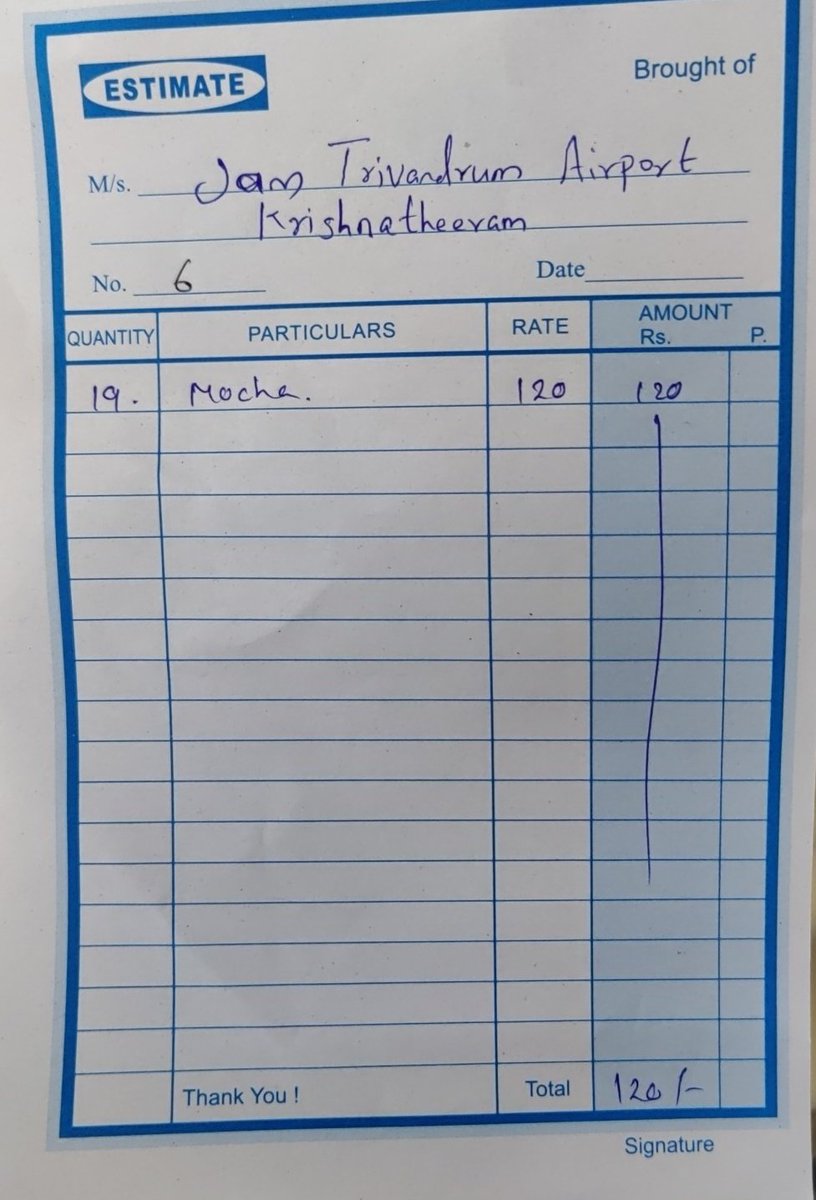 ESTIMATE
Brought of
M/s. Jam Trivandrum Airport
Krishnatheeram
No. 6 Date
QUANTITY PARTICULARS RATE AMOUNT Rs. P.
19. Mocha. 120 120
Thank You ! Total 120/-
Signature